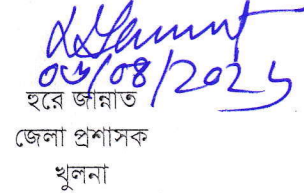 ০৬/০৪/২০২৬
হুরে জান্নাত
জেলা প্রশাসক
খুলনা